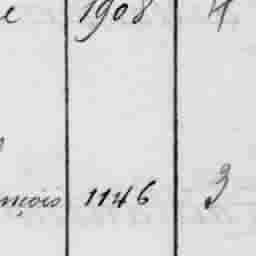 1908 4
nçois 1146 3